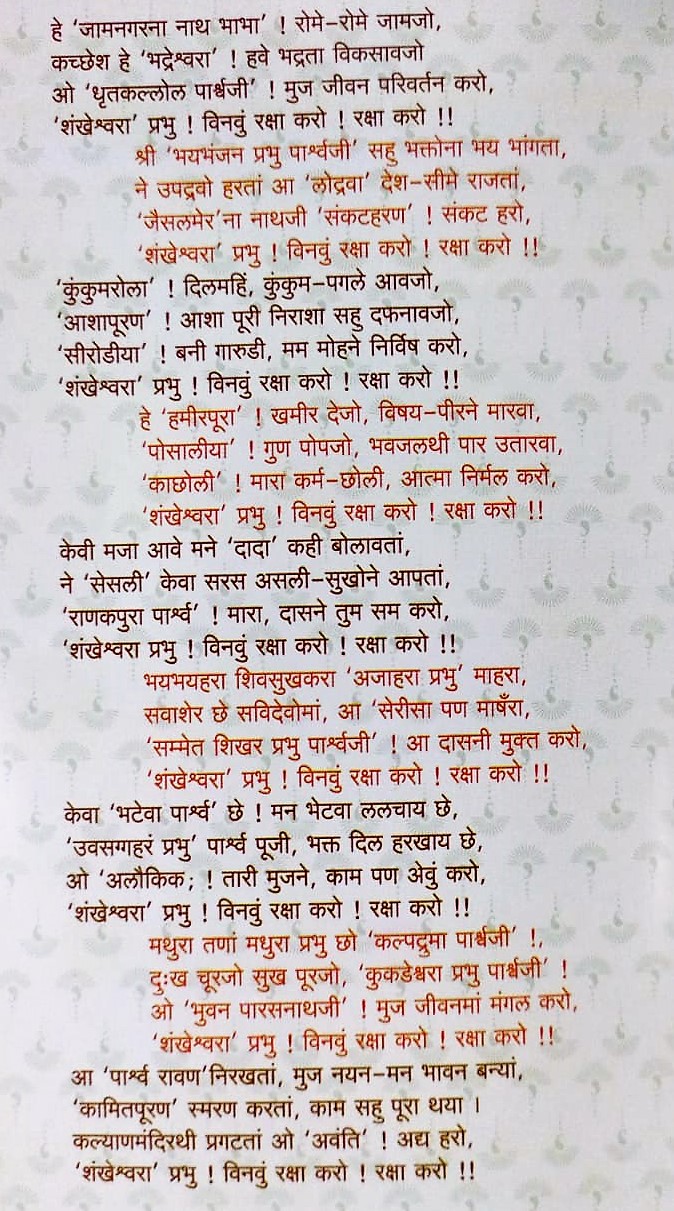 हे ‘जामनगरना नाथ भाभा’ ! रोमे-रोमे जामजो,
कच्छेश हे ‘भद्रेश्वरा’ ! हवे भद्रता विकसावजो
ओ ‘धृतकल्लोल पार्श्वजी’ ! मुज जीवन परिवर्तन करो,
‘शंखेश्वरा’ प्रभु ! विनवुं रक्षा करो ! रक्षा करो !!
श्री ‘भयभंजन प्रभु पार्श्वजी’ सहु भक्तोना भय भांगता,
ने उपद्रवो हरतां आ ‘लोद्रवा’ देश-सीमे राजतां,
‘जैसलमेर’ना नाथजी ‘संकटहरण’ ! संकट हरो,
‘शंखेश्वरा’ प्रभु ! विनवुं रक्षा करो ! रक्षा करो !!
‘कुंकुमरोला’ ! दिलमहिं, कुंकुम-पगले आवजो,
‘आशापूरण’ ! आशा पूरी निराशा सहु दफनावजो,
‘सीरोडीया’ ! बनी गारुडी, मम मोहने निर्विष करो,
‘शंखेश्वरा’ प्रभु ! विनवुं रक्षा करो ! रक्षा करो !!
हे ‘हमीरपूरा’ ! खमीर देजो, विषय-पीरने मारवा,
‘पोसालीया’ ! गुण पोपजो, भवजलथी पार उतारवा,
‘काछोली’ ! मारा कर्म-छोली, आत्मा निर्मल करो,
‘शंखेश्वरा’ प्रभु ! विनवुं रक्षा करो ! रक्षा करो !!
केवी मजा आवे मने ‘दादा’ कही बोलावतां,
ने ‘सेसली’ केवा सरस असली-सुखोने आपतां,
‘राणकपुरा पार्श्व’ ! मारा, दासने तुम सम करो,
‘शंखेश्वरा प्रभु ! विनवुं रक्षा करो ! रक्षा करो !!
भयभयहरा शिवसुखकरा ‘अजाहरा प्रभु’ माहरा,
सवाशेर छे सविदेवोमां, आ ‘सेरीसा पण माषँरा,
‘सम्मेत शिखर प्रभु पार्श्वजी’ ! आ दासनी मुक्त करो,
‘शंखेश्वरा’ प्रभु ! विनवुं रक्षा करो ! रक्षा करो !!
केवा ‘भटेवा पार्श्व’ छे ! मन भेटवा ललचाय छे,
‘उवसग्गहरं प्रभु’ पार्श्व पूजी, भक्त दिल हरखाय छे,
ओ ‘अलौकिक; ! तारी मुजने, काम पण अेवुं करो,
‘शंखेश्वरा’ प्रभु ! विनवुं रक्षा करो ! रक्षा करो !!
मथुरा तणां मधुरा प्रभु छो ‘कल्पद्रुमा पार्श्वजी’ !,
दुःख चूरजो सुख पूरजो, ‘कुकडेश्वरा प्रभु पार्श्वजी’ !
ओ ‘भुवन पारसनाथजी’ ! मुज जीवनमां मंगल करो,
‘शंखेश्वरा’ प्रभु ! विनवुं रक्षा करो ! रक्षा करो !!
आ ‘पार्श्व रावण’निरखतां, मुज नयन-मन भावन बन्यां,
‘कामितपूरण’ स्मरण करतां, काम सहु पूरा थया ।
कल्याणमंदिरथी प्रगटतां ओ ‘अवंति’ ! अद्य हरो,
‘शंखेश्वरा’ प्रभु ! विनवुं रक्षा करो ! रक्षा करो !!